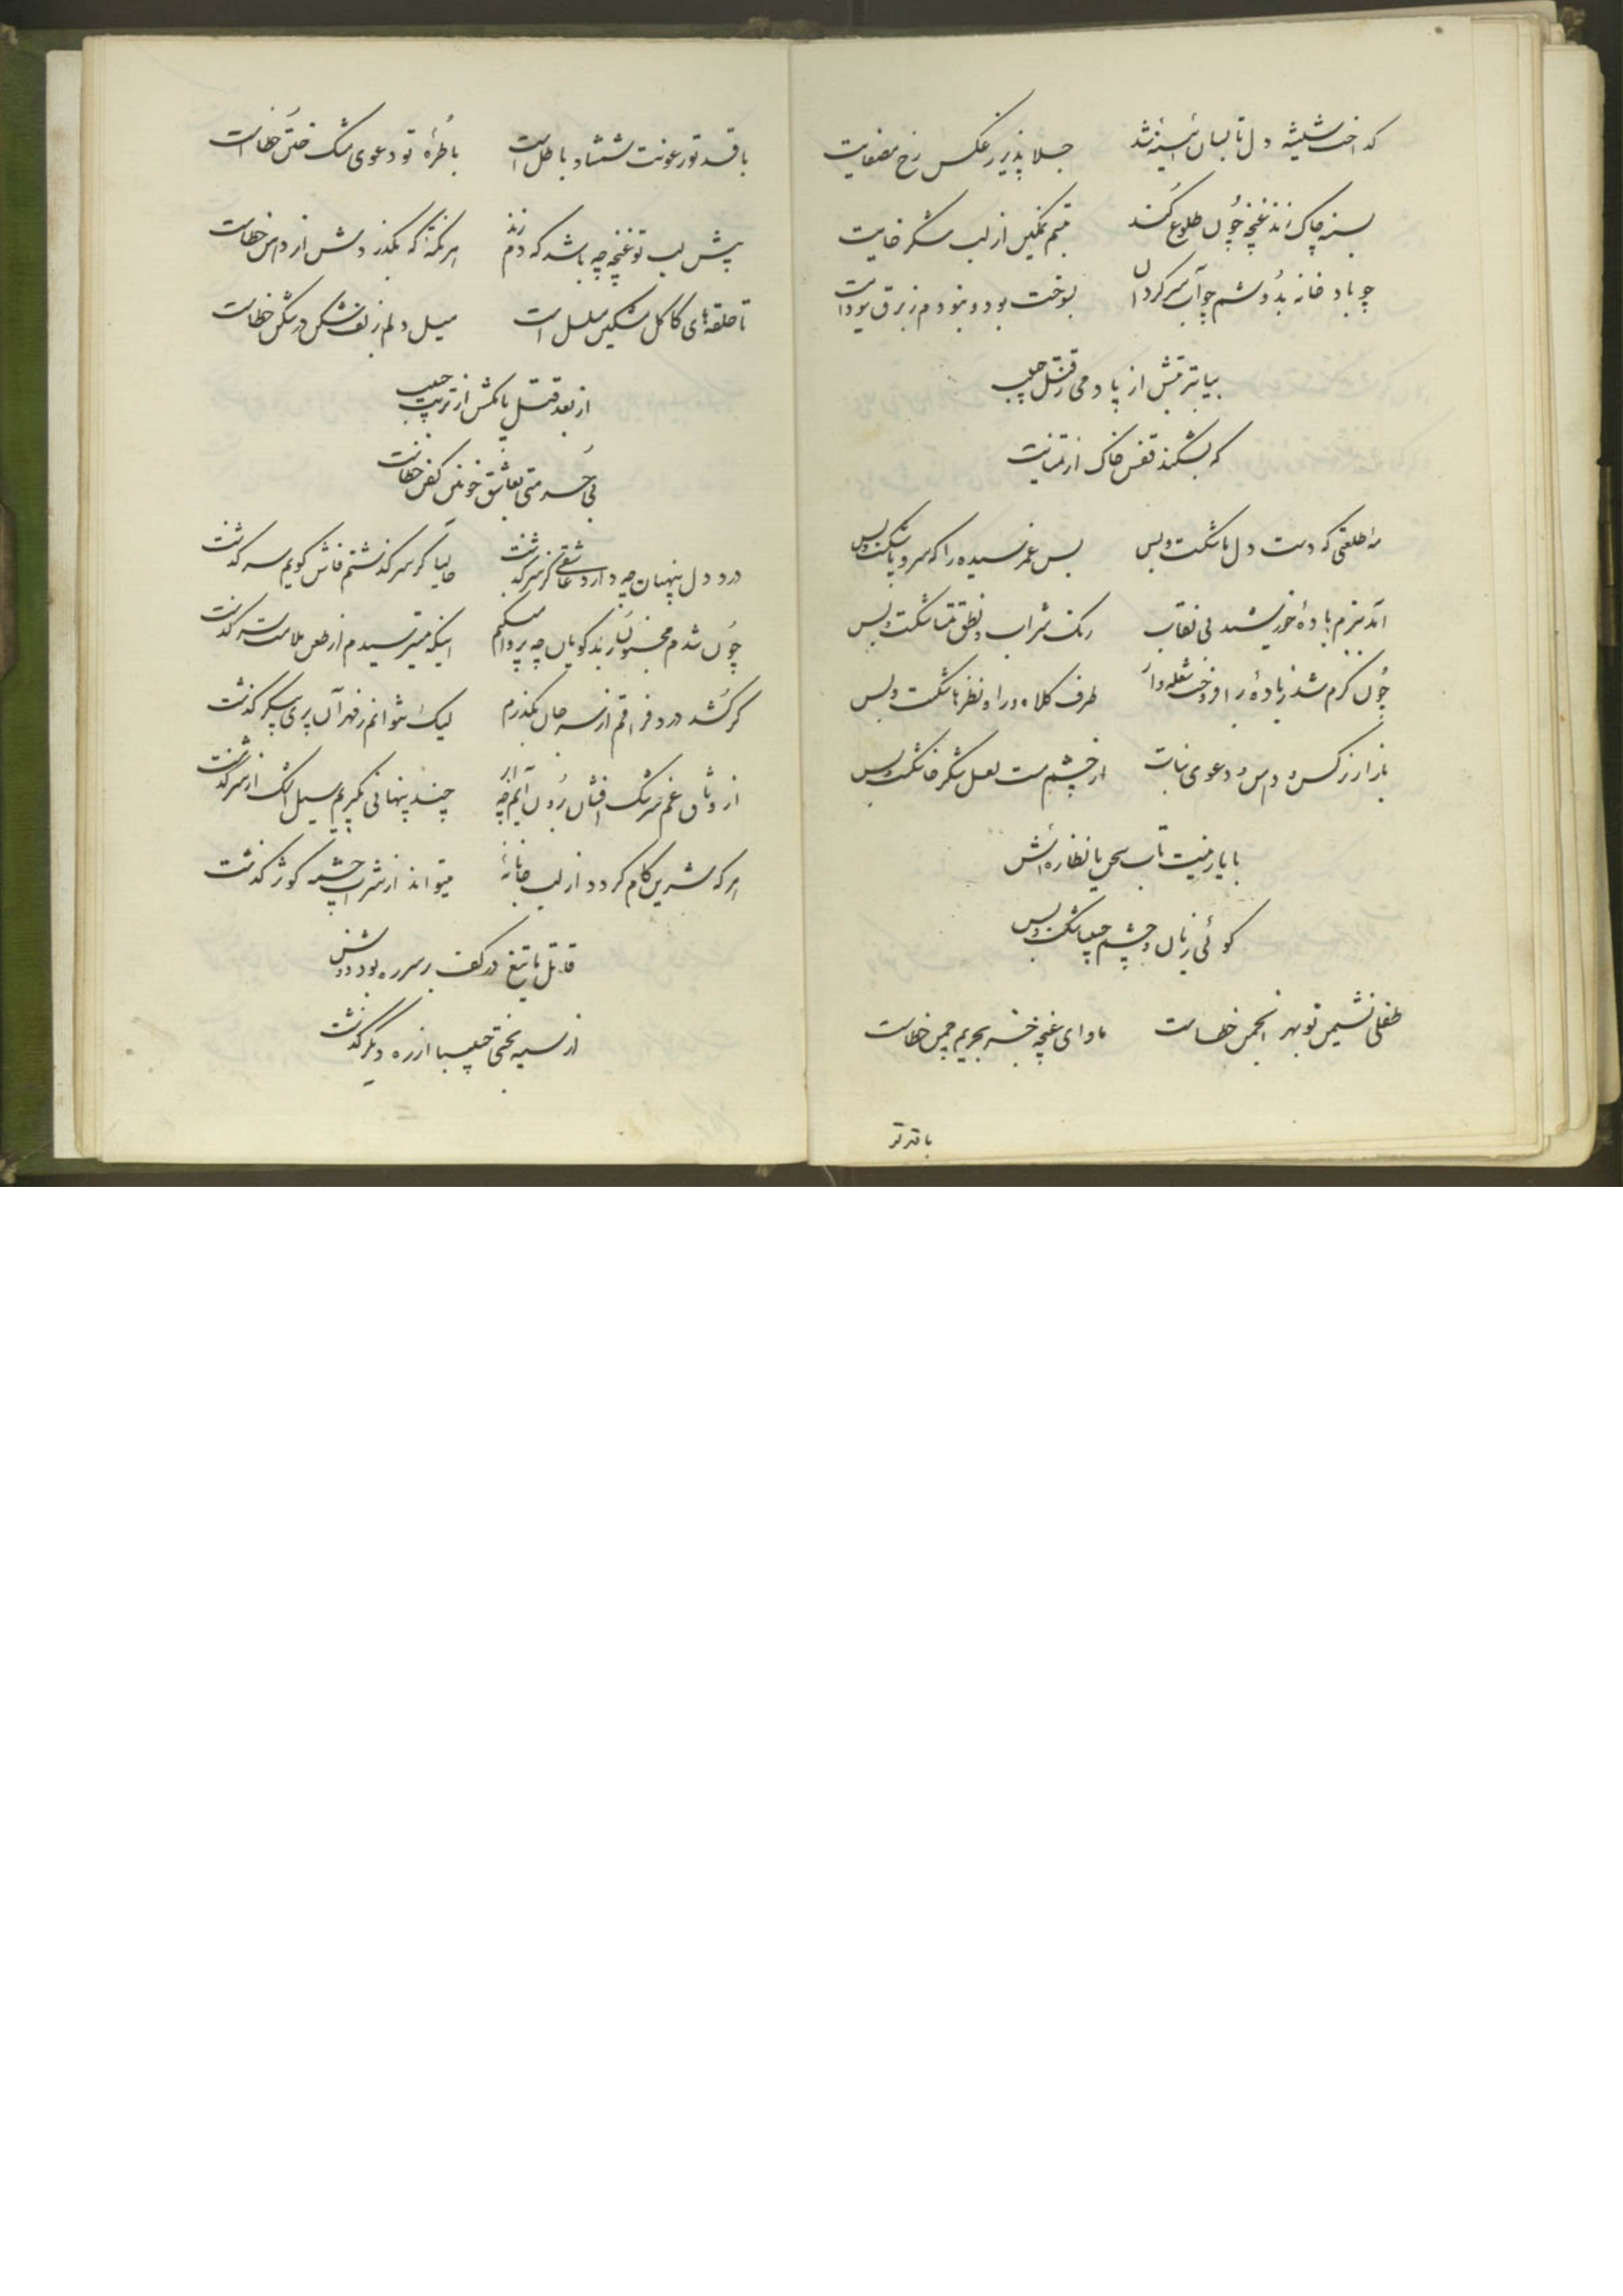 گداخت شیشهٔ دل تا بسان آیینه شد جلا پذیر ز عکس رخ مصفایت
بسینه چاک زند غنچه چون طلوع کند تبسم نمکین از لب شکر خایت
چو باد خانه بدوشم چو آب سرگردان بسوخت بود و نبودم ز برق سودایت
بیا بتربتش از یاد می قتل حبیب
که بشکند قفس خاک از تمنایت
مه طلعتی که دست دل ما شکست و بس بس عمر رسیده را که سر و پا شکست و بس
آمد ببزم باده خورشید بی نقاب رنگ شراب و نطق مینا شکست و بس
چون گرم شد ز باده برافروخت شعله‌وار طرف کلاه و در او نظر ما شکست و بس
بازار نرگس و دعوی نبات از چشم مست لعل شکرخا شکست و بس
با یار نیست تاب نظاره‌اش
گوئی زبان و چشم حبیبا شکست و بس
طفلی نشیمن تو بهر انجمن خطاست ماوای غنچه جز بحریم چمن خطاست
باقد تو
باقد تو رعونت شمشاد باطل است باطرهٔ تو دعوی مشک ختن خطاست
پیش لب تو غنچه چه باشد که دم زند هر نکته که بگذرد از خطاست
تا حلقه‌های کاکل مشکین مسلسل است میل دلم ز لف شکن در شکن خطاست
از بعد قتل پا مکش از تربت حبیب
بی‌حرمتی بعاشق خونین کفن خطاست
درد دل پنهان چه دارد عاشقی کز سر گذشت حالیا کز سر گذشتم فاش گویم سرگذشت
چون شدم مجنون ز بدگویان چه پروا میکنم اینکه میترسیدم از طعن ملامت در گذشت
گر کشد درد فراقم از سر جان بگذرم لیک نتوانم ز مهر آن پری پیکر گذشت
از وثاق غم سرشک افشان برون آیم چو ابر چند پنهانی بگریم سیل اشک از سر گذشت
هر که شیرین کام گردد از لب جانانهٔ میتواند از شراب چشمه کوثر گذشت
قاتل ما تیغ در کف بر سر ره بود دوش
از سیه بختی حبیبا از ره دیگر گذشت